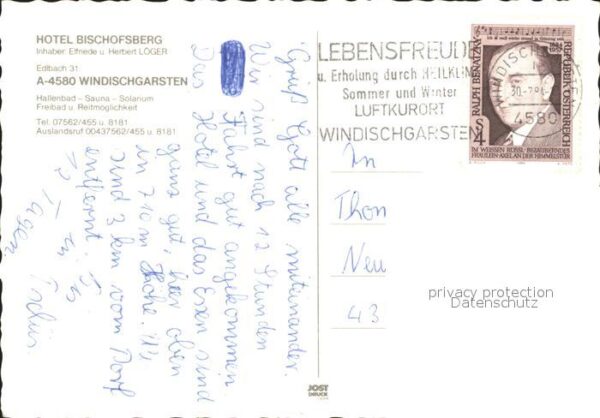 HOTEL BISCHOFSBERG
Inhaber: Elfriede u. Herbert LÖGER
Edlbach 31
A-4580 WINDISCHGARSTEN
Hallenbad – Sauna – Solarium
Freibad u. Reitmöglichkeit
Tel. 07562/455 u. 8181
Auslandsruf 00437562/455 u. 8181
Grüß Gott alle miteinander.
Wir sind nach 12 Stunden
Fahrt gut angekommen
Das Hotel und das Essen sind
ganz gut, hier oben
in 710 m Höhe.
und 3 km vom Dorf
entfernt. Bis
in
12 Tagen
Tschüs
LEBENSFREUDE
u. Erholung durch HEILKLIMA
Sommer und Winter
LUFTKURORT
WINDISCHGARSTEN
WINDISCHGARSTEN
4580
RALPH BENATZKY
1884
1957
REPUBLIK ÖSTERREICH
S 4
IM WEISSEN RÖSSL · BEZAUBERNDES
FRÄULEIN · AXEL AN DER HIMMELSTÜR
In
Thon
Neu
43
privacy protection
Datenschutz
JOST
DRUCK